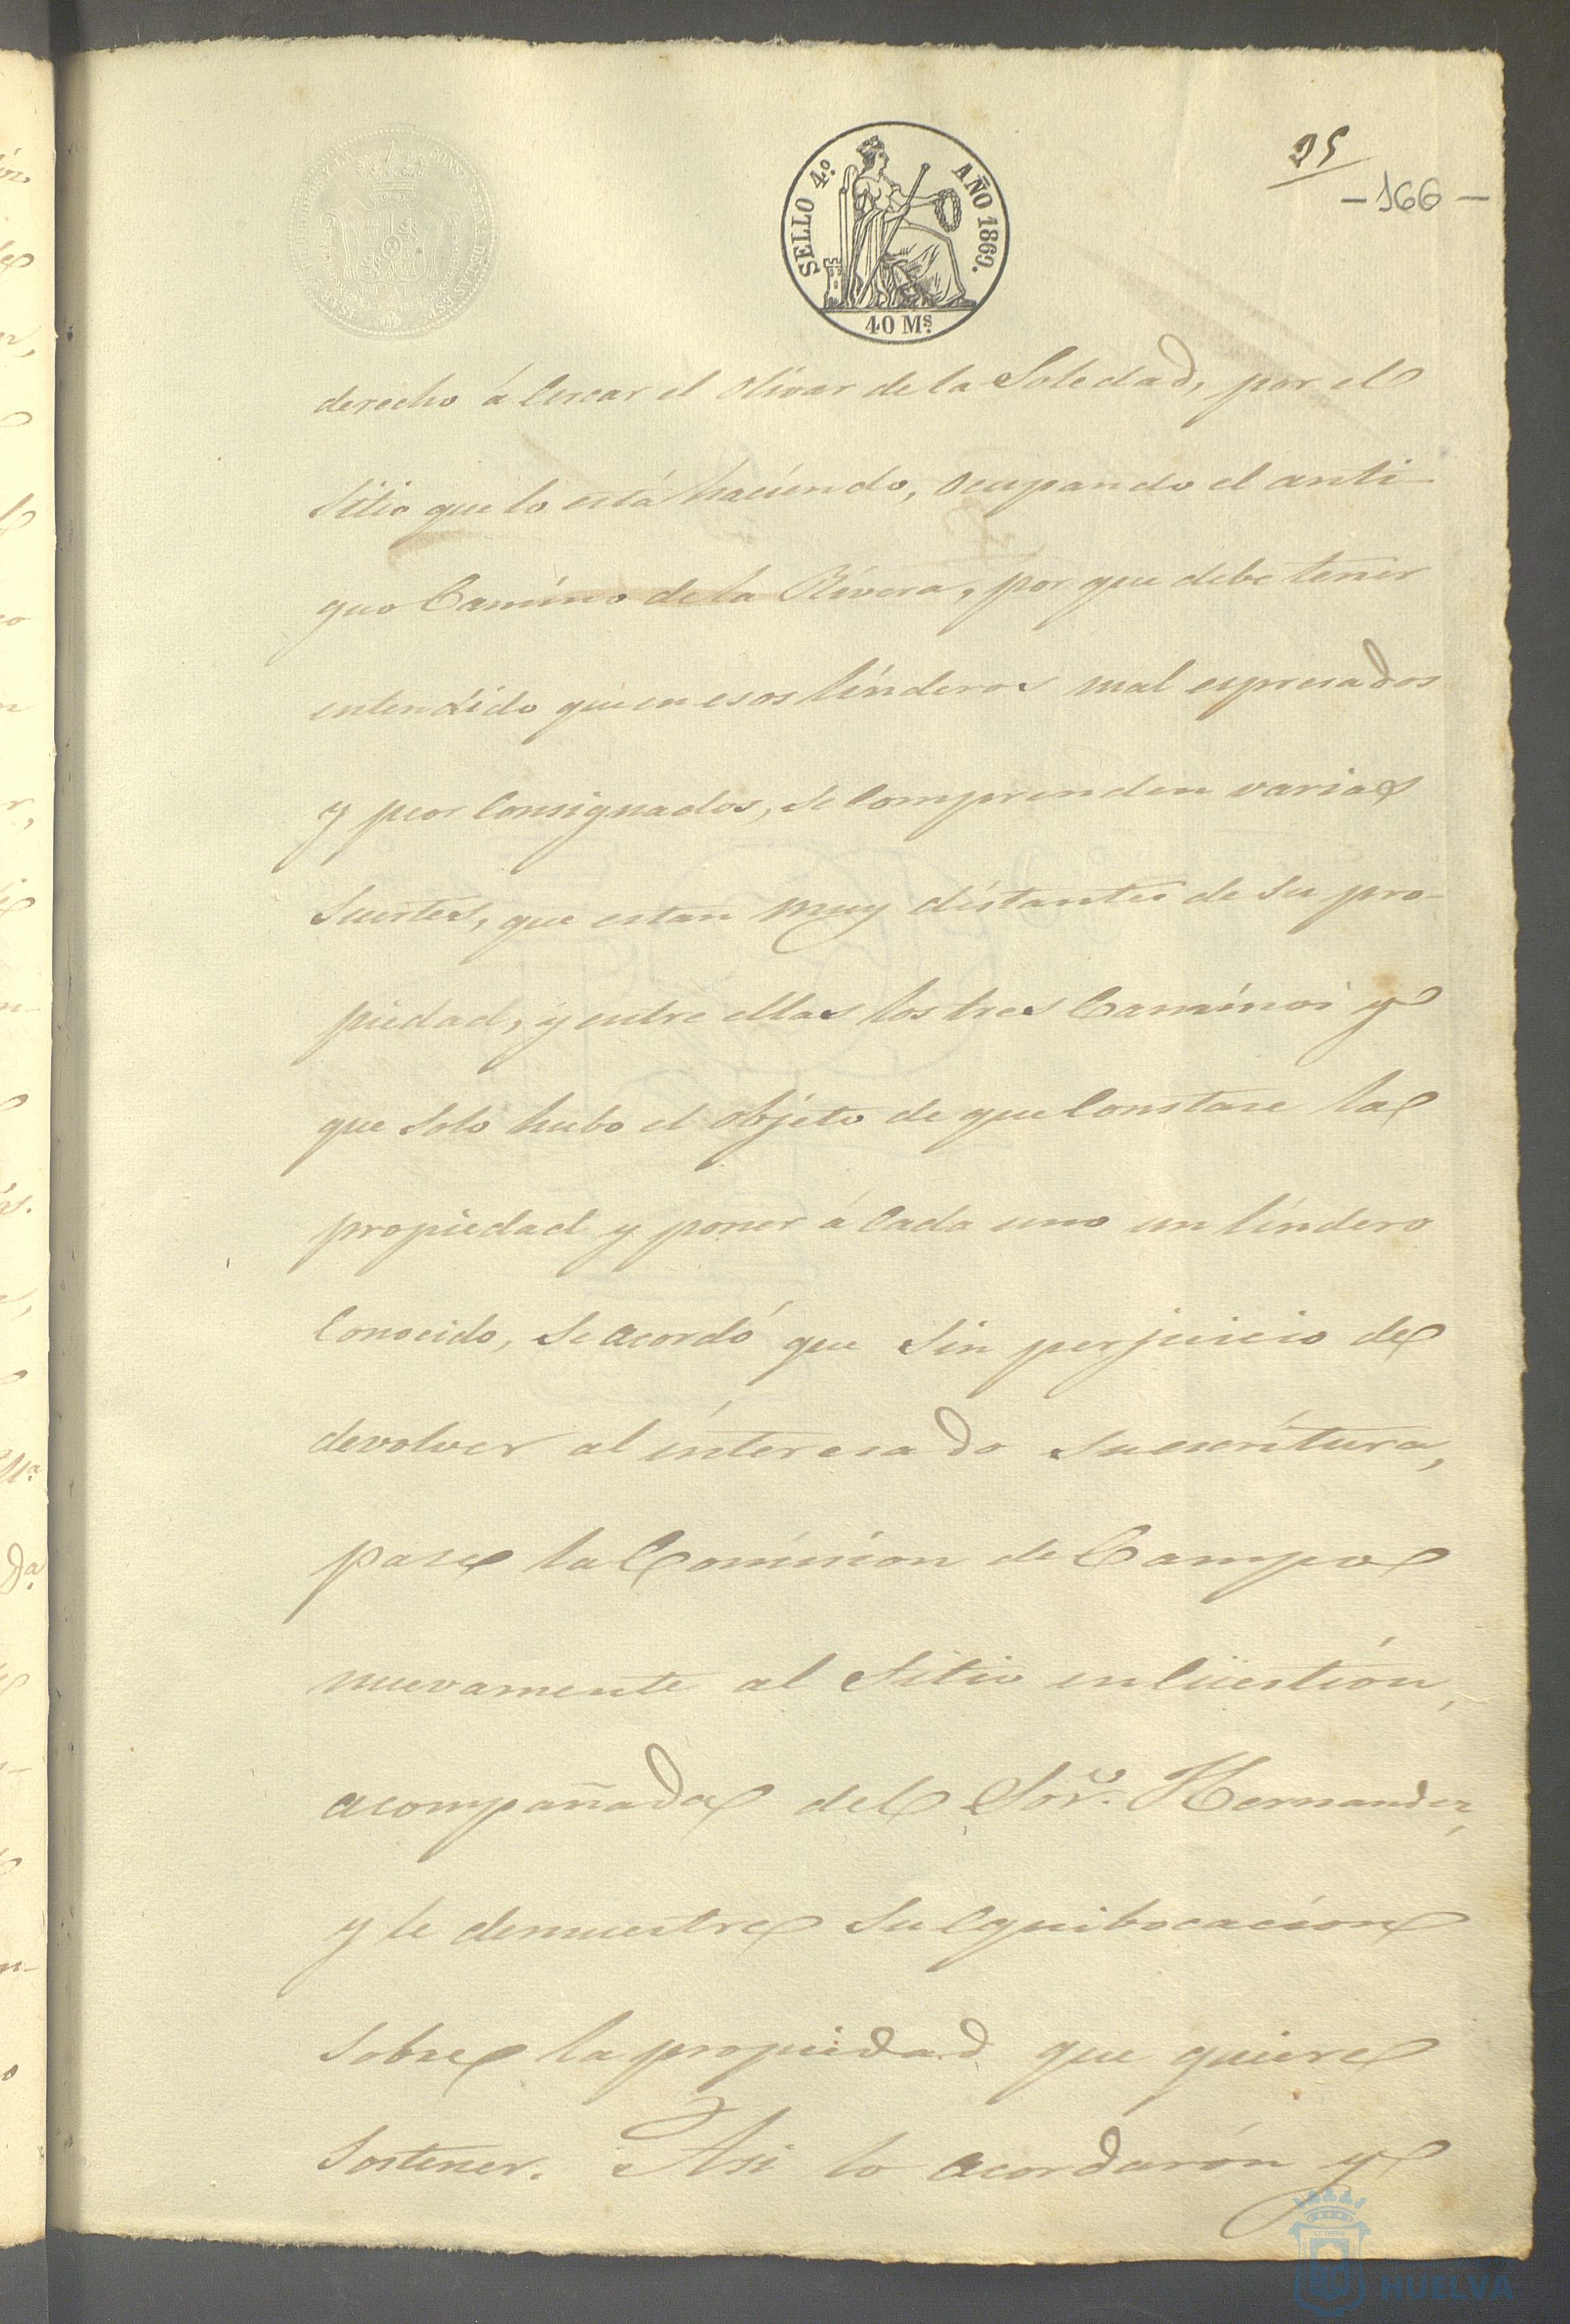 SELLO 4.º AÑO 1869.
40 Ms.
25
- 166 -
derecho á Cercar el Olivar de la Soledad, por el
Sitio que lo está haciendo, Ocupando el anti-
guo Camino de la Rivera, por que debe tener
entendido que en esos linderos mal espresados
y peor Consignados, se Comprenden varias
Suertes, que estan muy distantes de su pro-
piedad, y entre ellas los tres Caminos y
que Solo hubo el objeto de que Constase la
propiedad y poner á Cada uno un lindero
Conocido, se acordó que Sin perjuicio de
devolver al interesado su escritura,
pase la Comision de Campo
nuevamente al Sitio en Cüestión,
acompañada del Sor. Hernandez,
y le demuestre su equibocacion
Sobre la propiedad que quiere
Sostener. Asi lo acordarón y
HUELVA